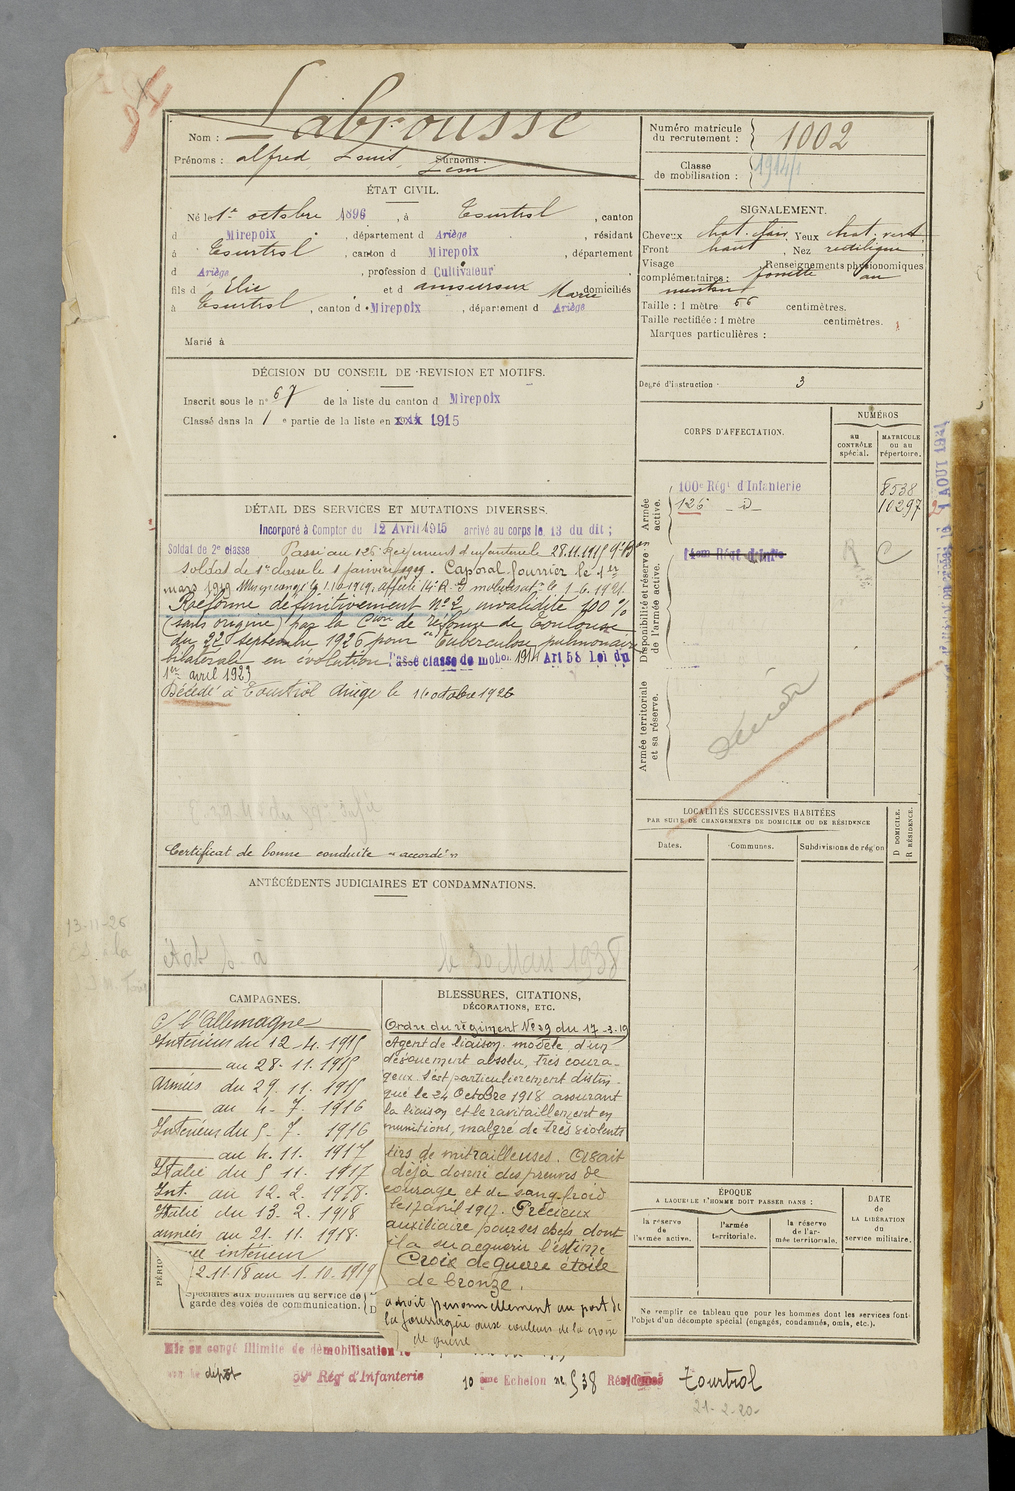 94
Nom : Labrousse
Prénoms : Alfred Louis Léon Surnoms :
Numéro matricule du recrutement : 1002
Classe de mobilisation : 1914/1
ÉTAT CIVIL.
Né le 1er octobre 1896, à Tourtrol, canton
d Mirepoix, département d Ariège, résidant
à Tourtrol, canton d Mirepoix, département
d Ariège, profession d Cultivateur
fils d Elie et d Marie domiciliés
à Tourtrol, canton d Mirepoix, département d Ariège
Marié à
SIGNALEMENT.
Cheveux chat. clair, Yeux chat. vert
Front haut, Nez rectiligne
Visage Renseignements physionomiques
complémentaires : fossette au
menton
Taille : 1 mètre 66 centimètres.
Taille rectifiée : 1 mètre centimètres.
Marques particulières :
Degré d'instruction : 3
DÉCISION DU CONSEIL DE REVISION ET MOTIFS.
Inscrit sous le n° 67 de la liste du canton d Mirepoix
Classé dans la 1e partie de la liste en 1915
CORPS D'AFFECTATION.
NUMÉROS
au CONTRÔLE spécial.
MATRICULE ou au répertoire.
Armée active.
100e Régt d'Infanterie 8538
126 - d - 10297
Disponibilité et réserve de l'armée active.
Régt d'Inf
R C
Armée territoriale et sa réserve.
DÉTAIL DES SERVICES ET MUTATIONS DIVERSES.
Incorporé à Compter du 12 Avril 1915 arrivé au corps le 13 du dit ;
Soldat de 2e classe Passé au 126 Régiment d'infanterie le 28.11.1915
Soldat de 1re classe le 1 janvier 1919. Caporal fourrier le 1er
mars 1919
Réformé définitivement n° 2 invalidité 100 %
(sans origine) par la Cion de réforme de Toulouse
du 22 septembre 1926 pour "tuberculose pulmonaire
bilatérale en évolution. Passé classe de mobon 1914 Art 58 Loi du
1er avril 1923
Décédé à Tourtrol Ariège le 16 octobre 1926
Certificat de bonne conduite "accordé"
LOCALITÉS SUCCESSIVES HABITÉES
PAR SUITE DE CHANGEMENTS DE DOMICILE OU DE RÉSIDENCE
Dates.
Communes.
Subdivisions de région
D DOMICILE.
R RÉSIDENCE.
ANTÉCÉDENTS JUDICIAIRES ET CONDAMNATIONS.
13-11-26
le 30 Mars 1938
CAMPAGNES.
C/ l'Allemagne
Intérieur du 12-4.1915
au 28.11.1915
Armées du 29.11.1915
au 4-7.1916
Intérieur du 5-7.1916
au 4.11.1917
Italie du 5 11.1917
Int. au 12.2.1918.
Italie du 13-2.1918
armées au 21.11.1918.
intérieur
2 11 18 au 1.10.1919
spéciales aux hommes du service de
garde des voies de communication.
BLESSURES, CITATIONS,
DÉCORATIONS, ETC.
Ordre du régiment N° 39 du 17-3-19
Agent de liaison modèle, d'un
dévouement absolu, très coura-
geux. S'est particulièrement distin-
gué le 24 Octobre 1918 assurant
la liaison et le ravitaillement en
munitions, malgré de très violents
tirs de mitrailleuses. Avait
déjà donné des preuves de
courage et de sang-froid
le 17 avril 1917. Précieux
auxiliaire pour ses chefs dont
il a su acquérir l'estime
Croix de guerre étoile
de bronze.
a droit personnellement au port de
la fourragère aux couleurs de la croix
de guerre
ÉPOQUE
A LAQUELLE L'HOMME DOIT PASSER DANS :
la réserve de l'armée active.
l'armée territoriale.
la réserve de l'armée territoriale.
DATE DE LA LIBÉRATION du service militaire.
Ne remplir ce tableau que pour les hommes dont les services font
l'objet d'un décompte spécial (engagés, condamnés, omis, etc.).
Mis en congé illimité de démobilisation le
dépôt 59e Rég d'Infanterie 10 ème Echelon n° 538 Résidence Tourtrol
21-2-20-